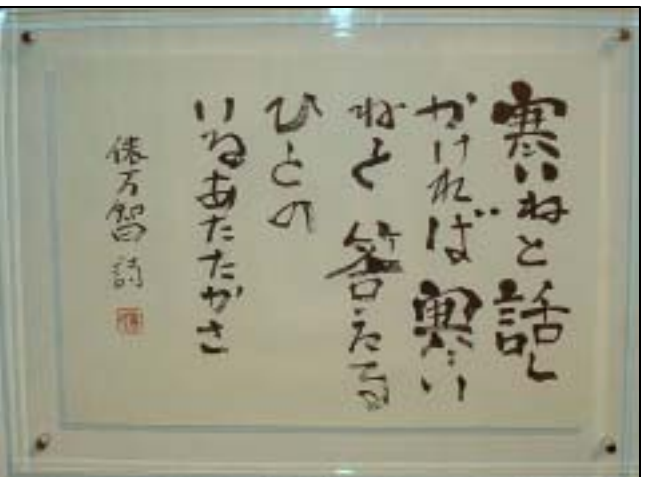 寒いねと話し
かければ寒い
ねと答える
ひとの
いるあたたかさ
俵万智 詩